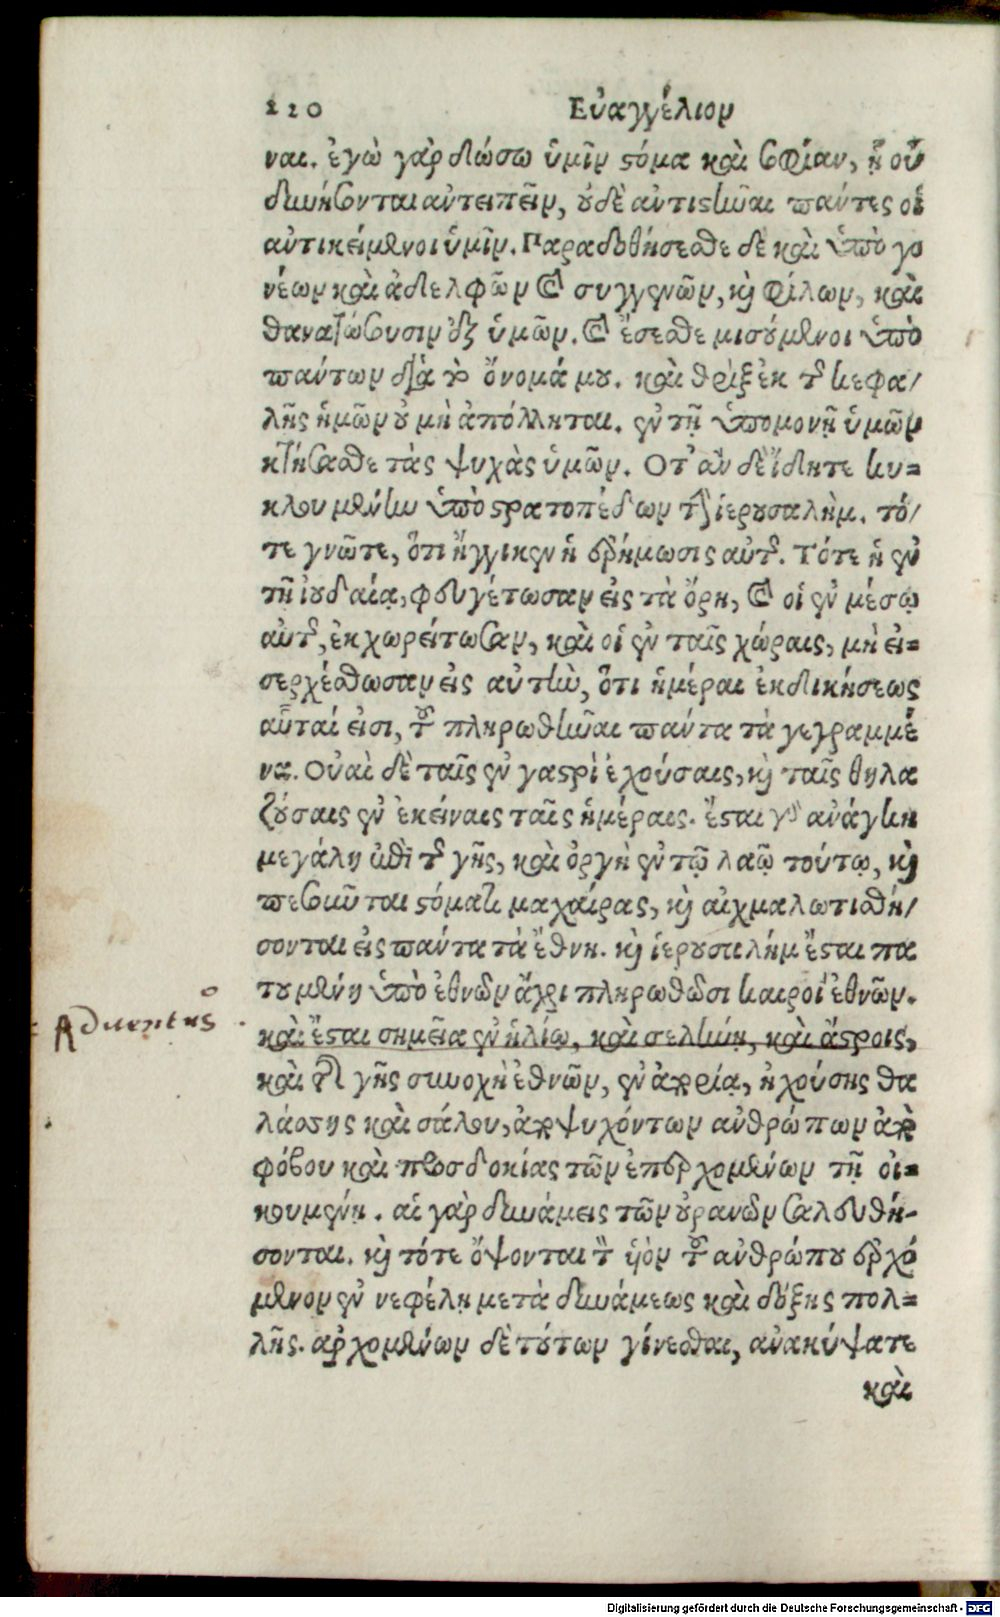 220 Εὐαγγέλιον
ναι. ἐγὼ γὰρ δώσω ὑμῖν στόμα καὶ σοφίαν, ᾗ οὐ
δυνήσονται ἀντειπεῖν, οὐδὲ ἀντιστῆναι πάντες οἱ
ἀντικείμενοι ὑμῖν. Παραδοθήσεσθε δὲ καὶ ὑπὸ γο
νέων καὶ ἀδελφῶν καὶ συγγενῶν, καὶ φίλων, καὶ
θανατώσουσιν ἐξ ὑμῶν. καὶ ἔσεσθε μισούμενοι ὑπὸ
πάντων διὰ τὸ ὄνομά μου. καὶ θρὶξ ἐκ τῆς κεφα/
λῆς ἡμῶν οὐ μὴ ἀπόλληται. ἐν τῇ ὑπομονῇ ὑμῶν
κτήσασθε τὰς ψυχὰς ὑμῶν. Οτ' ἂν δὲ ἴδητε κυ=
κλουμένην ὑπὸ στρατοπέδων τὴν ἱερουσαλὴμ. τό/
τε γνῶτε, ὅτι ἤγγικεν ἡ ἐρήμωσις αὐτῆς. Τότε ἡ ἐν
τῇ ἰουδαίᾳ, φευγέτωσαν εἰς τὰ ὄρη, καὶ οἱ ἐν μέσῳ
αὐτῆς, ἐκχωρείτωσαν, καὶ οἱ ἐν ταῖς χώραις, μὴ εἰ=
σερχέσθωσαν εἰς αὐτὴν, ὅτι ἡμέραι ἐκδικήσεως
αὗταί εἰσι, τοῦ πληρωθῆναι πάντα τὰ γεγραμμέ
να. Οὐαὶ δὲ ταῖς ἐν γαστρὶ ἐχούσαις, καὶ ταῖς θηλα
ζούσαις ἐν ἐκείναις ταῖς ἡμέραις. ἔσται γὰρ ἀνάγκη
μεγάλη ἐπὶ τῆς γῆς, καὶ ὀργὴ ἐν τῷ λαῷ τούτῳ, καὶ
πεσοῦνται στόματι μαχαίρας, καὶ αἰχμαλωτισθή/
σονται εἰς πάντα τὰ ἔθνη. καὶ ἱερουσαλήμ ἔσται πα
τουμένη ὑπὸ ἐθνῶν ἄχρι πληρωθῶσι καιροὶ ἐθνῶν.
Aduentus
καὶ ἔσται σημεῖα ἐν ἡλίῳ, καὶ σελήνῃ, καὶ ἄστροις,
καὶ ἐπὶ γῆς συνοχὴ ἐθνῶν, ἐν ἀπορίᾳ, ἠχούσης θα
λάσσης καὶ σάλου, ἀποψυχόντων ἀνθρώπων ἀπὸ
φόβου καὶ προσδοκίας τῶν ἐπερχομένων τῇ οἰ=
κουμένῃ. αἱ γὰρ δυνάμεις τῶν οὐρανῶν σαλευθή-
σονται. καὶ τότε ὄψονται τὸν υἱὸν τοῦ ἀνθρώπου ἐρχό
μενον ἐν νεφέλῃ μετὰ δυνάμεως καὶ δόξης πολ=
λῆς. ἀρχομένων δὲ τούτων γίνεσθαι, ἀνακύψατε
καὶ
Digitalisierung gefördert durch die Deutsche Forschungsgemeinschaft - DFG